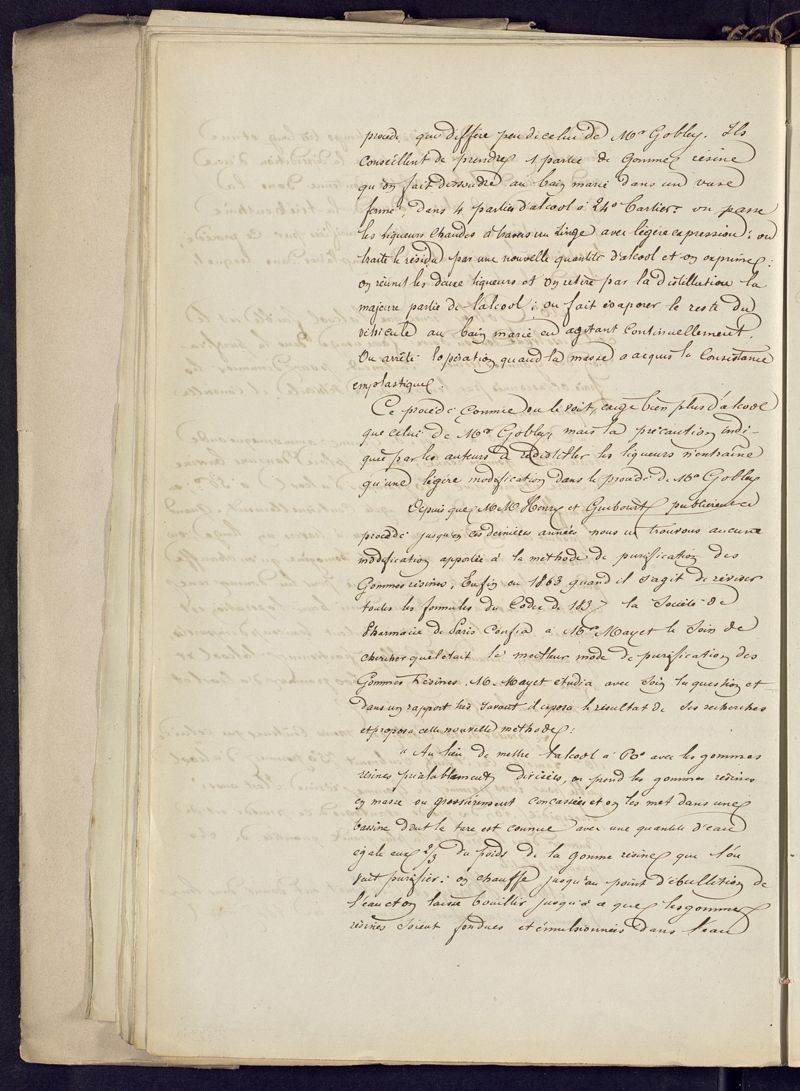 procédé qui diffère peu de celui de Mr Gobley. Ils
conseillent de prendre 1 partie de gomme résine
qu'on fait dissoudre au bain marie dans un vase
fermé, dans 4 parties d'alcool à 24° Cartier. on passe
les liqueurs chaudes à travers un linge avec légère expression; on
traite le résidu par une nouvelle quantité d'alcool et on exprime;
on réunit les deux liqueurs et on retire par la distillation la
majeure partie de l'alcool; on fait évaporer le reste du
véhicule au bain marie en agitant continuellement.
On arrête l'opération quand la masse a acquis la consistance
emplastique.
Ce procédé comme on le voit, exige bien plus d'alcool
que celui de Mr Gobley mais la précaution indi-
quée par les auteurs de redistiller les liqueurs n'entraîne
qu'une légère modification dans le procédé de Mr Gobley
Depuis que MM. Henry et Guibourt publièrent ce
procédé jusqu'en ces dernières années nous ne trouvons aucune
modification apportée à la méthode de purification des
Gommes résines, Enfin en 1863 quand il s'agit de réviser
toutes les formules du Codex de 1837 la Société de
Pharmacie de Paris confia à Mr Mayet le soin de
chercher quel était le meilleur mode de purification des
Gommes Résines. M. Mayet étudia avec soin la question et
dans un rapport très savant exposa le résultat de ses recherches
et proposa cette nouvelle méthode:
" Au lieu de mettre l'alcool à 80° avec les gommes
résines préalablement divisées, on prend les gommes résines
en masse ou grossièrement concassées et on les met dans une
bassine dont la tare est connue avec une quantité d'eau
égale aux 2/3 du poids de la gomme résine que l'on
veut purifier: on chauffe jusqu'au point d'ébullition de
l'eau et on laisse bouillir jusqu'à ce que les gommes
résines soient fondues et émulsionnées dans l'eau